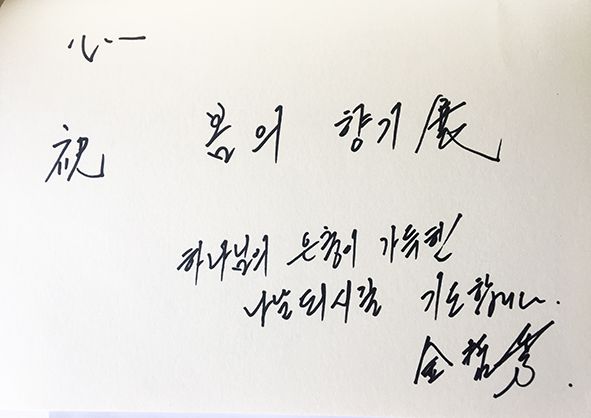 心一
祝 봄의 향기展
하나님의 은총이 가득한
나날 되시길 기도합니다.
金哲